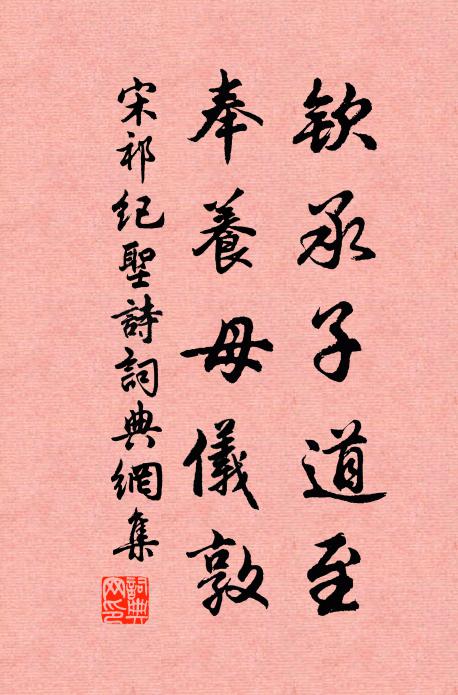 欽承子道至
奉養母儀敦
宋祁紀聖詩詞典網集
詞典網印